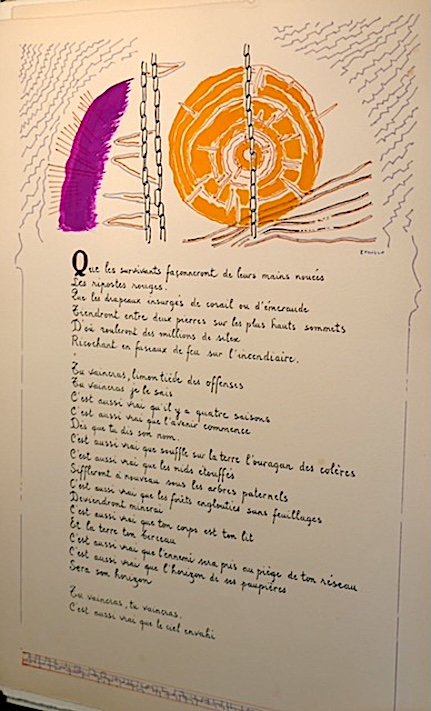 Que les survivants façonneront de leurs mains nouées
Les ripostes rouges.
Que les drapeaux insurgés de corail ou d'émeraude
Tiendront entre deux pierres sur les plus hauts sommets
D'où rouleront des millions de silex
Ricochant en fuseaux de feu sur l'incendiaire.
Tu vaincras, limon tiède des offenses
Tu vaincras je le sais
C'est aussi vrai qu'il y a quatre saisons
C'est aussi vrai que l'avenir commence
Dès que tu dis son nom.
C'est aussi vrai que souffle sur la terre l'ouragan des colères
C'est aussi vrai que les nids étouffés
Siffleront à nouveau sous les arbres paternels
C'est aussi vrai que les forêts englouties sans feuillages
Deviendront minerai
C'est aussi vrai que ton corps est ton lit
Et la terre ton berceau
C'est aussi vrai que l'ennemi sera pris au piège de ton réseau
C'est aussi vrai que l'horizon de ses paupières
Sera son horizon
Tu vaincras, tu vaincras,
C'est aussi vrai que le ciel envahi